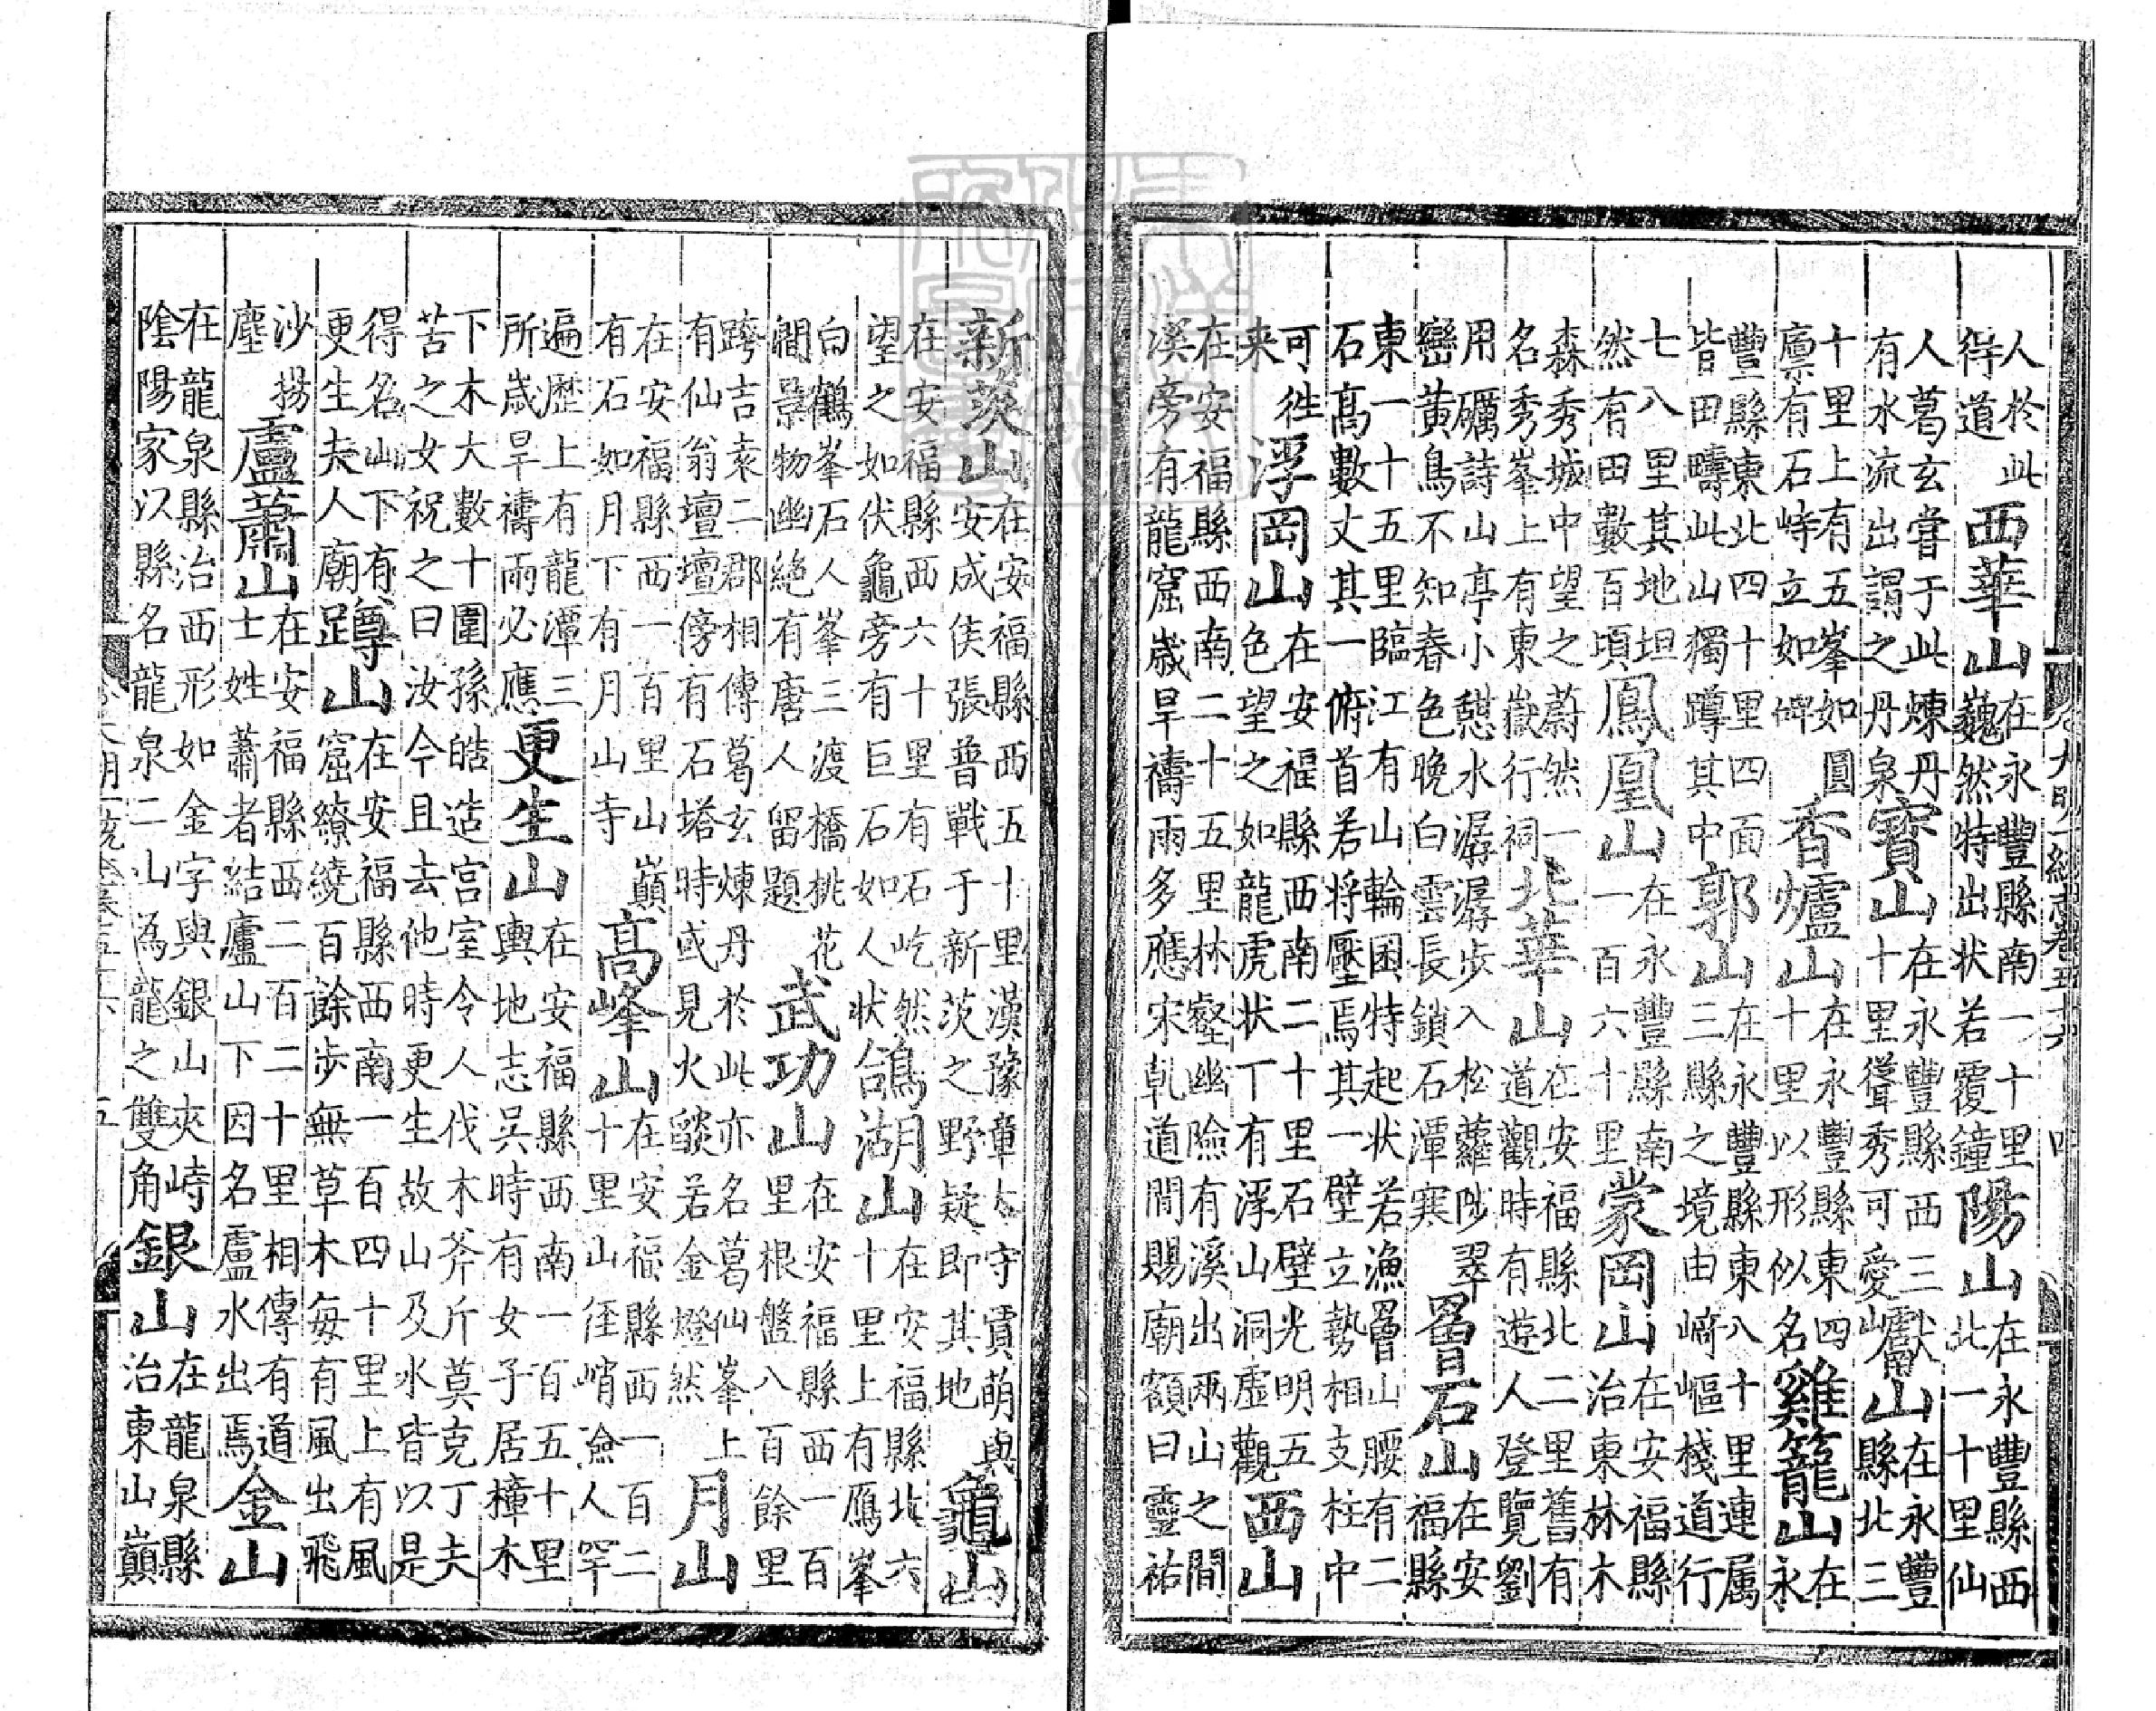 人於此得道西華山在永豐縣南一十里巍然特出状若覆鐘陽山在永豐縣西北一十里仙
人葛玄嘗于此煉丹有水流出謂之丹泉寶山在永豐縣西三十里聳秀可愛巘山在永豐縣北三
十里上有五峯如圓廪有石峙立如碑香爐山在永豐縣東四十里以形似名雞籠山在永
豐縣東北四十里四面皆田疇此山獨蹲其中郭山在永豐縣東八十里連属三縣之境由崎嶇棧道行
七八里其地坦然有田數百頃鳳凰山在永豐縣南一百六十里蒙岡山在安福縣治東林木
森秀城中望之蔚然一名秀峯上有東嶽行祠北華山在安福縣北二里舊有道觀時有遊人登覽劉
用礪詩山亭小憇水潺潺步入松蘿陟翠巒黄鳥不知春色晚白雲長鎖石潭寒罾石山在安福縣
東一十五里臨江有山輪囷特起状若漁罾山腰有二石高數丈其一俯首若将壓焉其一壁立勢相支柱中
可徃来浮岡山在安福縣西南二十里石壁光明五色望之如龍虎状丁有浮山洞虚觀西山
在安福縣西南二十五里林壑幽險有溪出兩山之間溪旁有龍窟歲旱禱雨多應宋乾道間賜廟額曰靈祐
新茨山在安福縣西五十里漢豫章太守賈萌與安成侯張普戰于新茨之野疑即其地龜山
在安福縣西六十里有石屹然望之如伏龜旁有巨石如人状鴿湖山在安福縣北六十里上有鴈峯
白鶴峯石人峯三渡橋桃花澗景物幽絶有唐人留題武功山在安福縣西一百里根盤八百餘里
跨吉袁二郡相傳葛玄煉丹於此亦名葛仙峯上有仙翁壇壇傍有石塔時或見火燄若金燈然月山
在安福縣西一百里山巔有石如月下有月山寺高峰山在安福縣西一百二十里山徑峭險人罕
遍歷上有龍潭三所歲旱禱雨必應更生山在安福縣西南一百五十里輿地志吳時有女子居橦木
下木大數十圍孫皓造宫室令人伐木斧斤莫克丁夫苦之女祝之曰汝今且去他時更生故山及水皆以是
得名山下有更生夫人廟蹲山在安福縣西南一百四十里上有風窟繚繞百餘步無草木每有風出飛
沙揚塵盧蕭山在安福縣西二百二十里相傳有道士姓蕭者結廬山下因名盧水出焉金山
在龍泉縣治西形如金字與銀山夾峙陰陽家以縣名龍泉二山為龍之雙角銀山在龍泉縣治東山巔